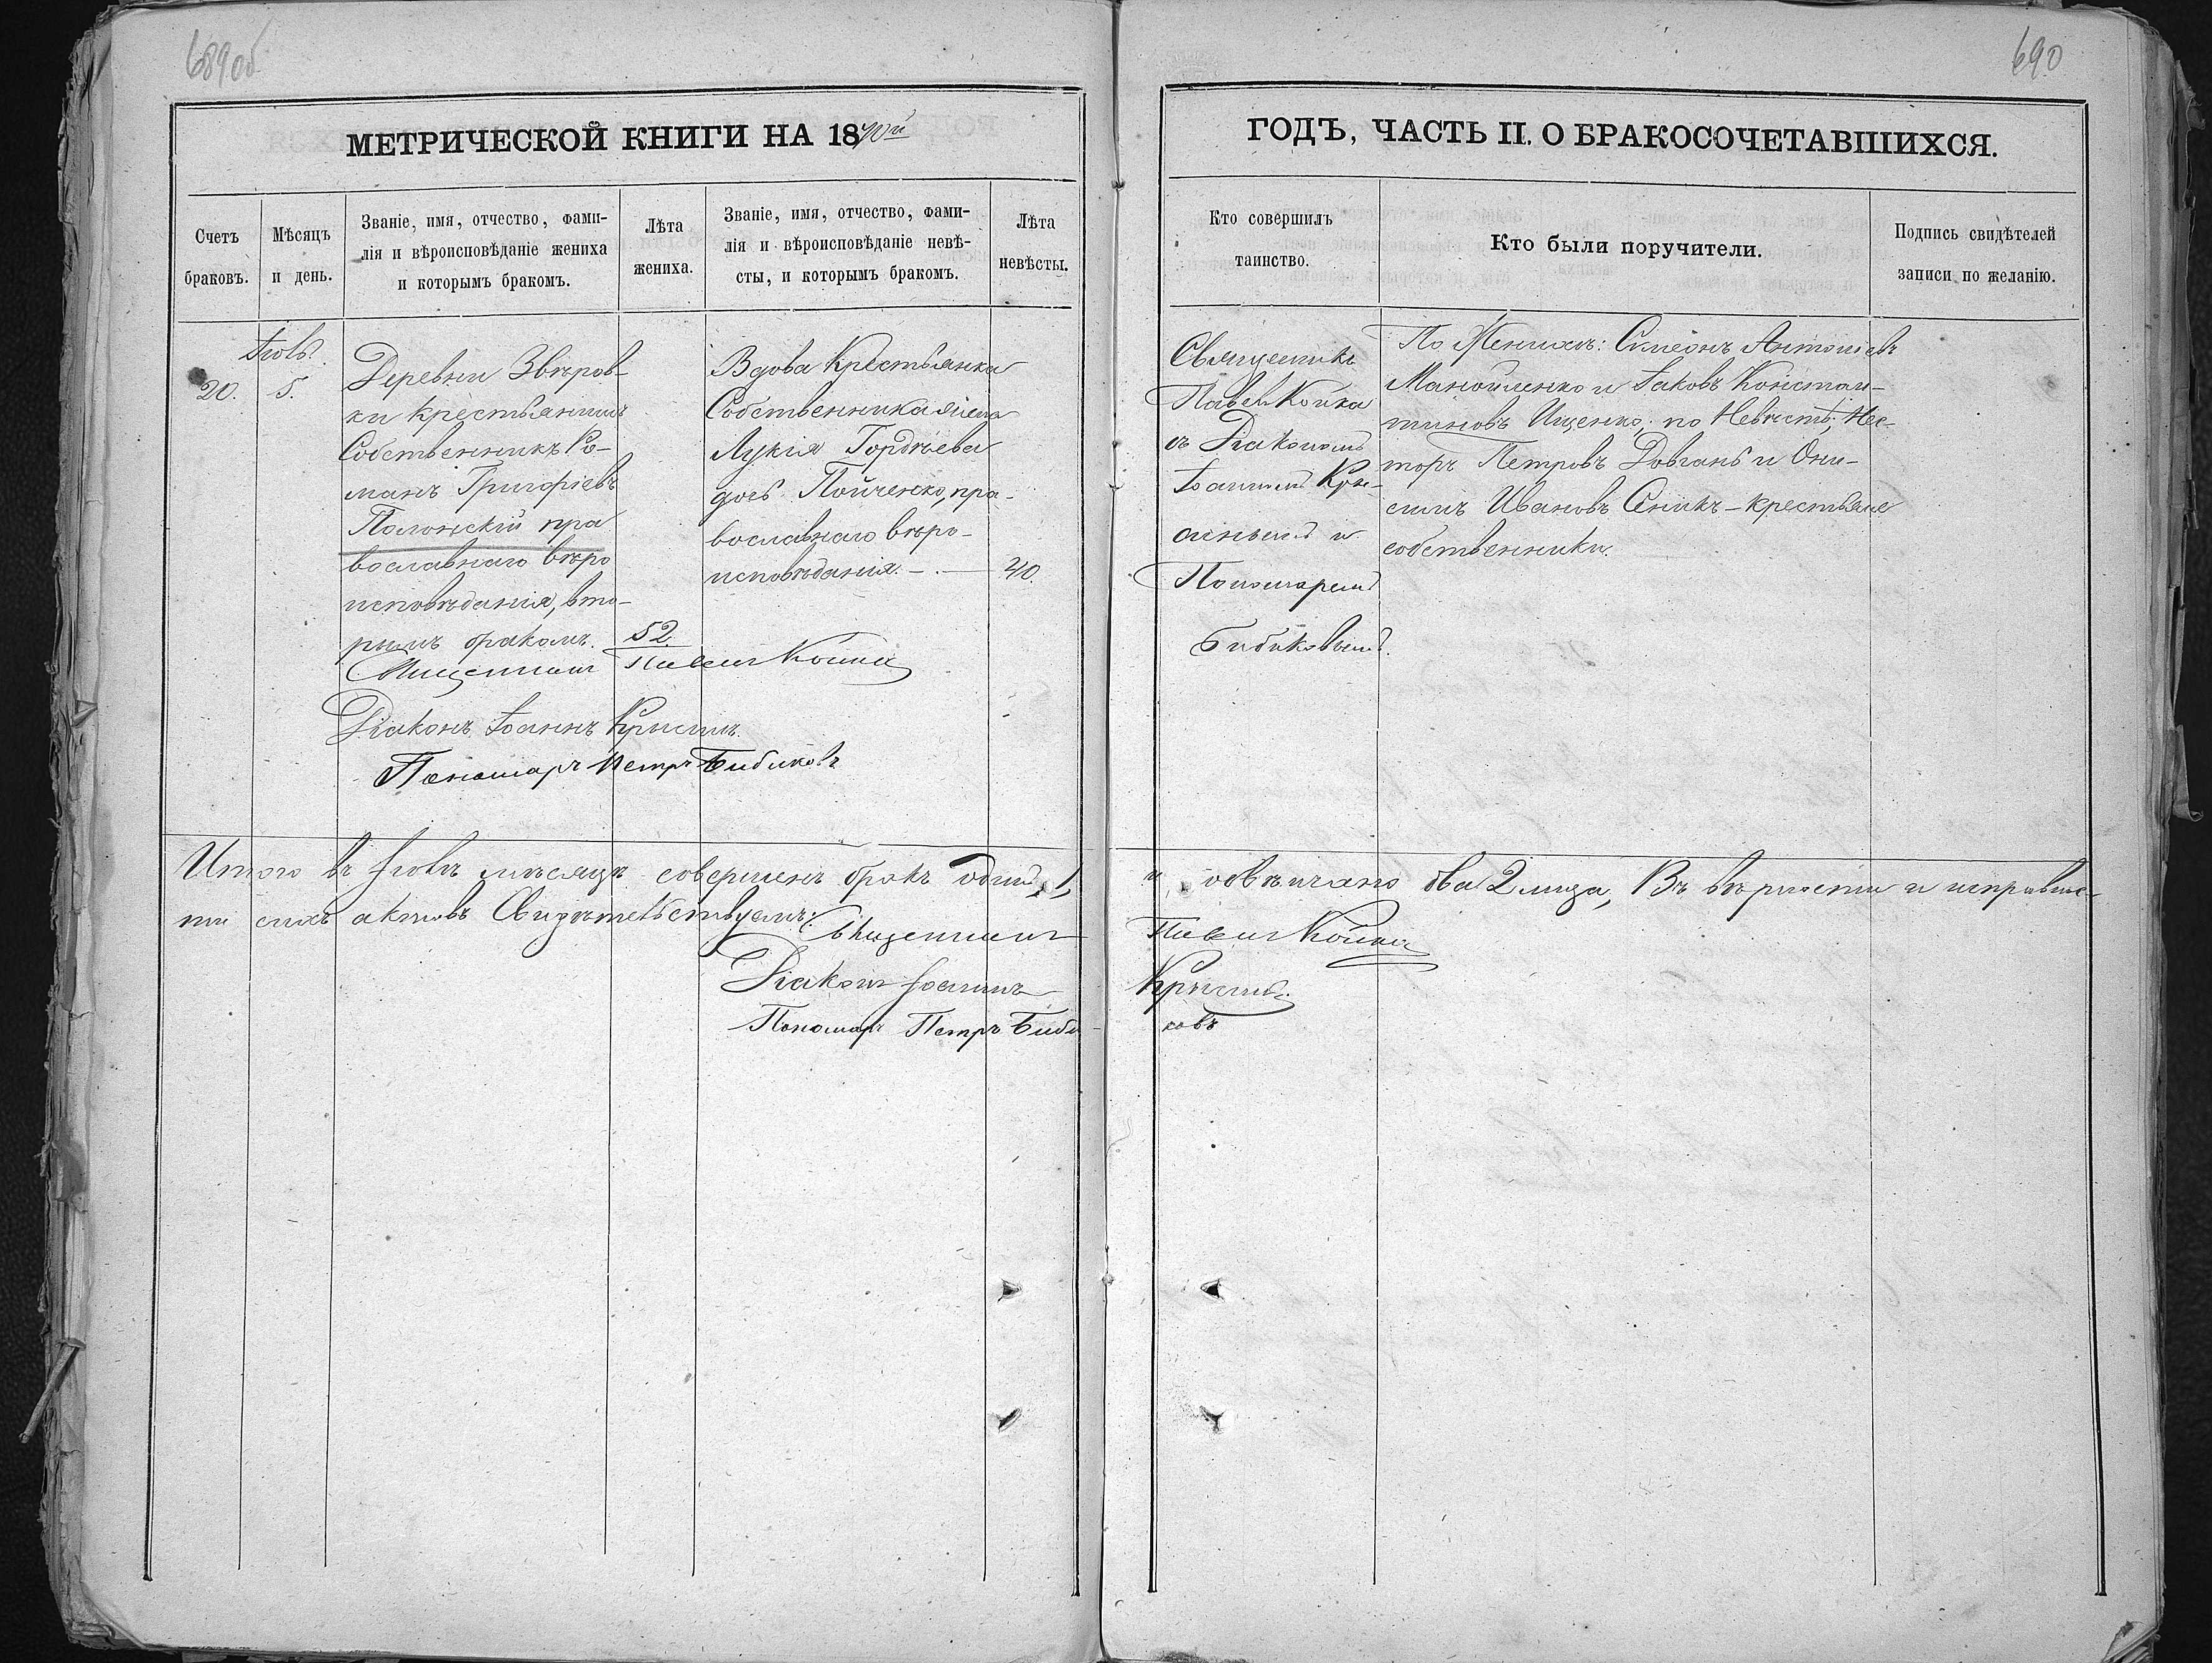 689об
690
МЕТРИЧЕСКОЙ КНИГИ НА 1870й
ГОДЪ, ЧАСТЬ II. О БРАКОСОЧЕТАВШИХСЯ.
Счетъ
браковъ.
Мѣсяцъ
и день.
Званіе, имя, отчество, фами-
лія и вѣроисповѣданіе жениха
и которымъ бракомъ.
Лѣта
жениха.
Званіе, имя, отчество, фами-
лія и вѣроисповѣданіе невѣ-
сты, и которымъ бракомъ.
Лѣта
невѣсты.
Кто совершилъ
таинство.
Кто были поручители.
Подпись свидѣтелей
записи по желанію.
20.
5.
Деревни Звѣров-
ки крестьянинъ
Собственникъ Ро-
манъ Григоріевъ
Полонскій пра
вославнаго вѣро
исповѣданія, вто-
рымъ бракомъ.
52.
Вдова Крестьянка
Собственника
Лукія Гордѣева
дочь Пойченко, пра-
вославнаго вѣро-
исповѣданія. — . —
40.
Священникъ
Павелъ Койка
съ Діакономъ
Іоанномъ Кры-
и
Пономаремъ
Бибиковымъ.
По Женихѣ: Симеонъ Антоніевъ
Манойленко и Іаковъ Констан-
тиновъ Ищенко; по Невѣстѣ; Нес-
торъ Петровъ Довгань и Они-
симъ Ивановъ Сеникъ – крестьяне
собственники.
Священникъ Павелъ Койка
Діаконъ Іоаннъ
Пономарь Петръ Бибиковъ
Итого въ мѣсяцѣ совершенъ бракъ одинъ 1,
и обвѣнчано два 2 лица, Въ вѣрности и исправнос-
ти сихъ актовъ Свидѣтельствуемъ:
Священникъ Павелъ Койка
Діаконъ Іоаннъ
Пономарь Петръ Биби-
ковъ